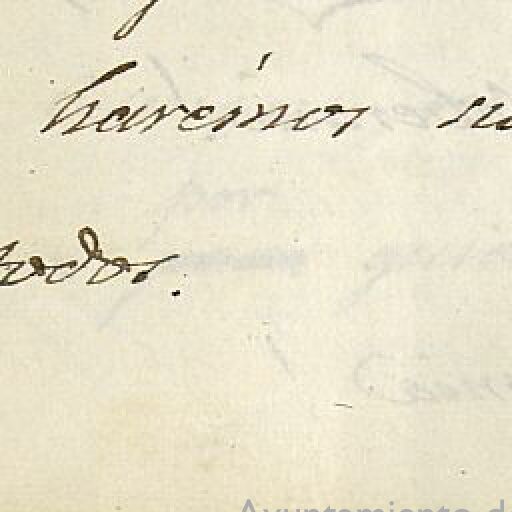 harémos
todos.
Ayuntamiento d